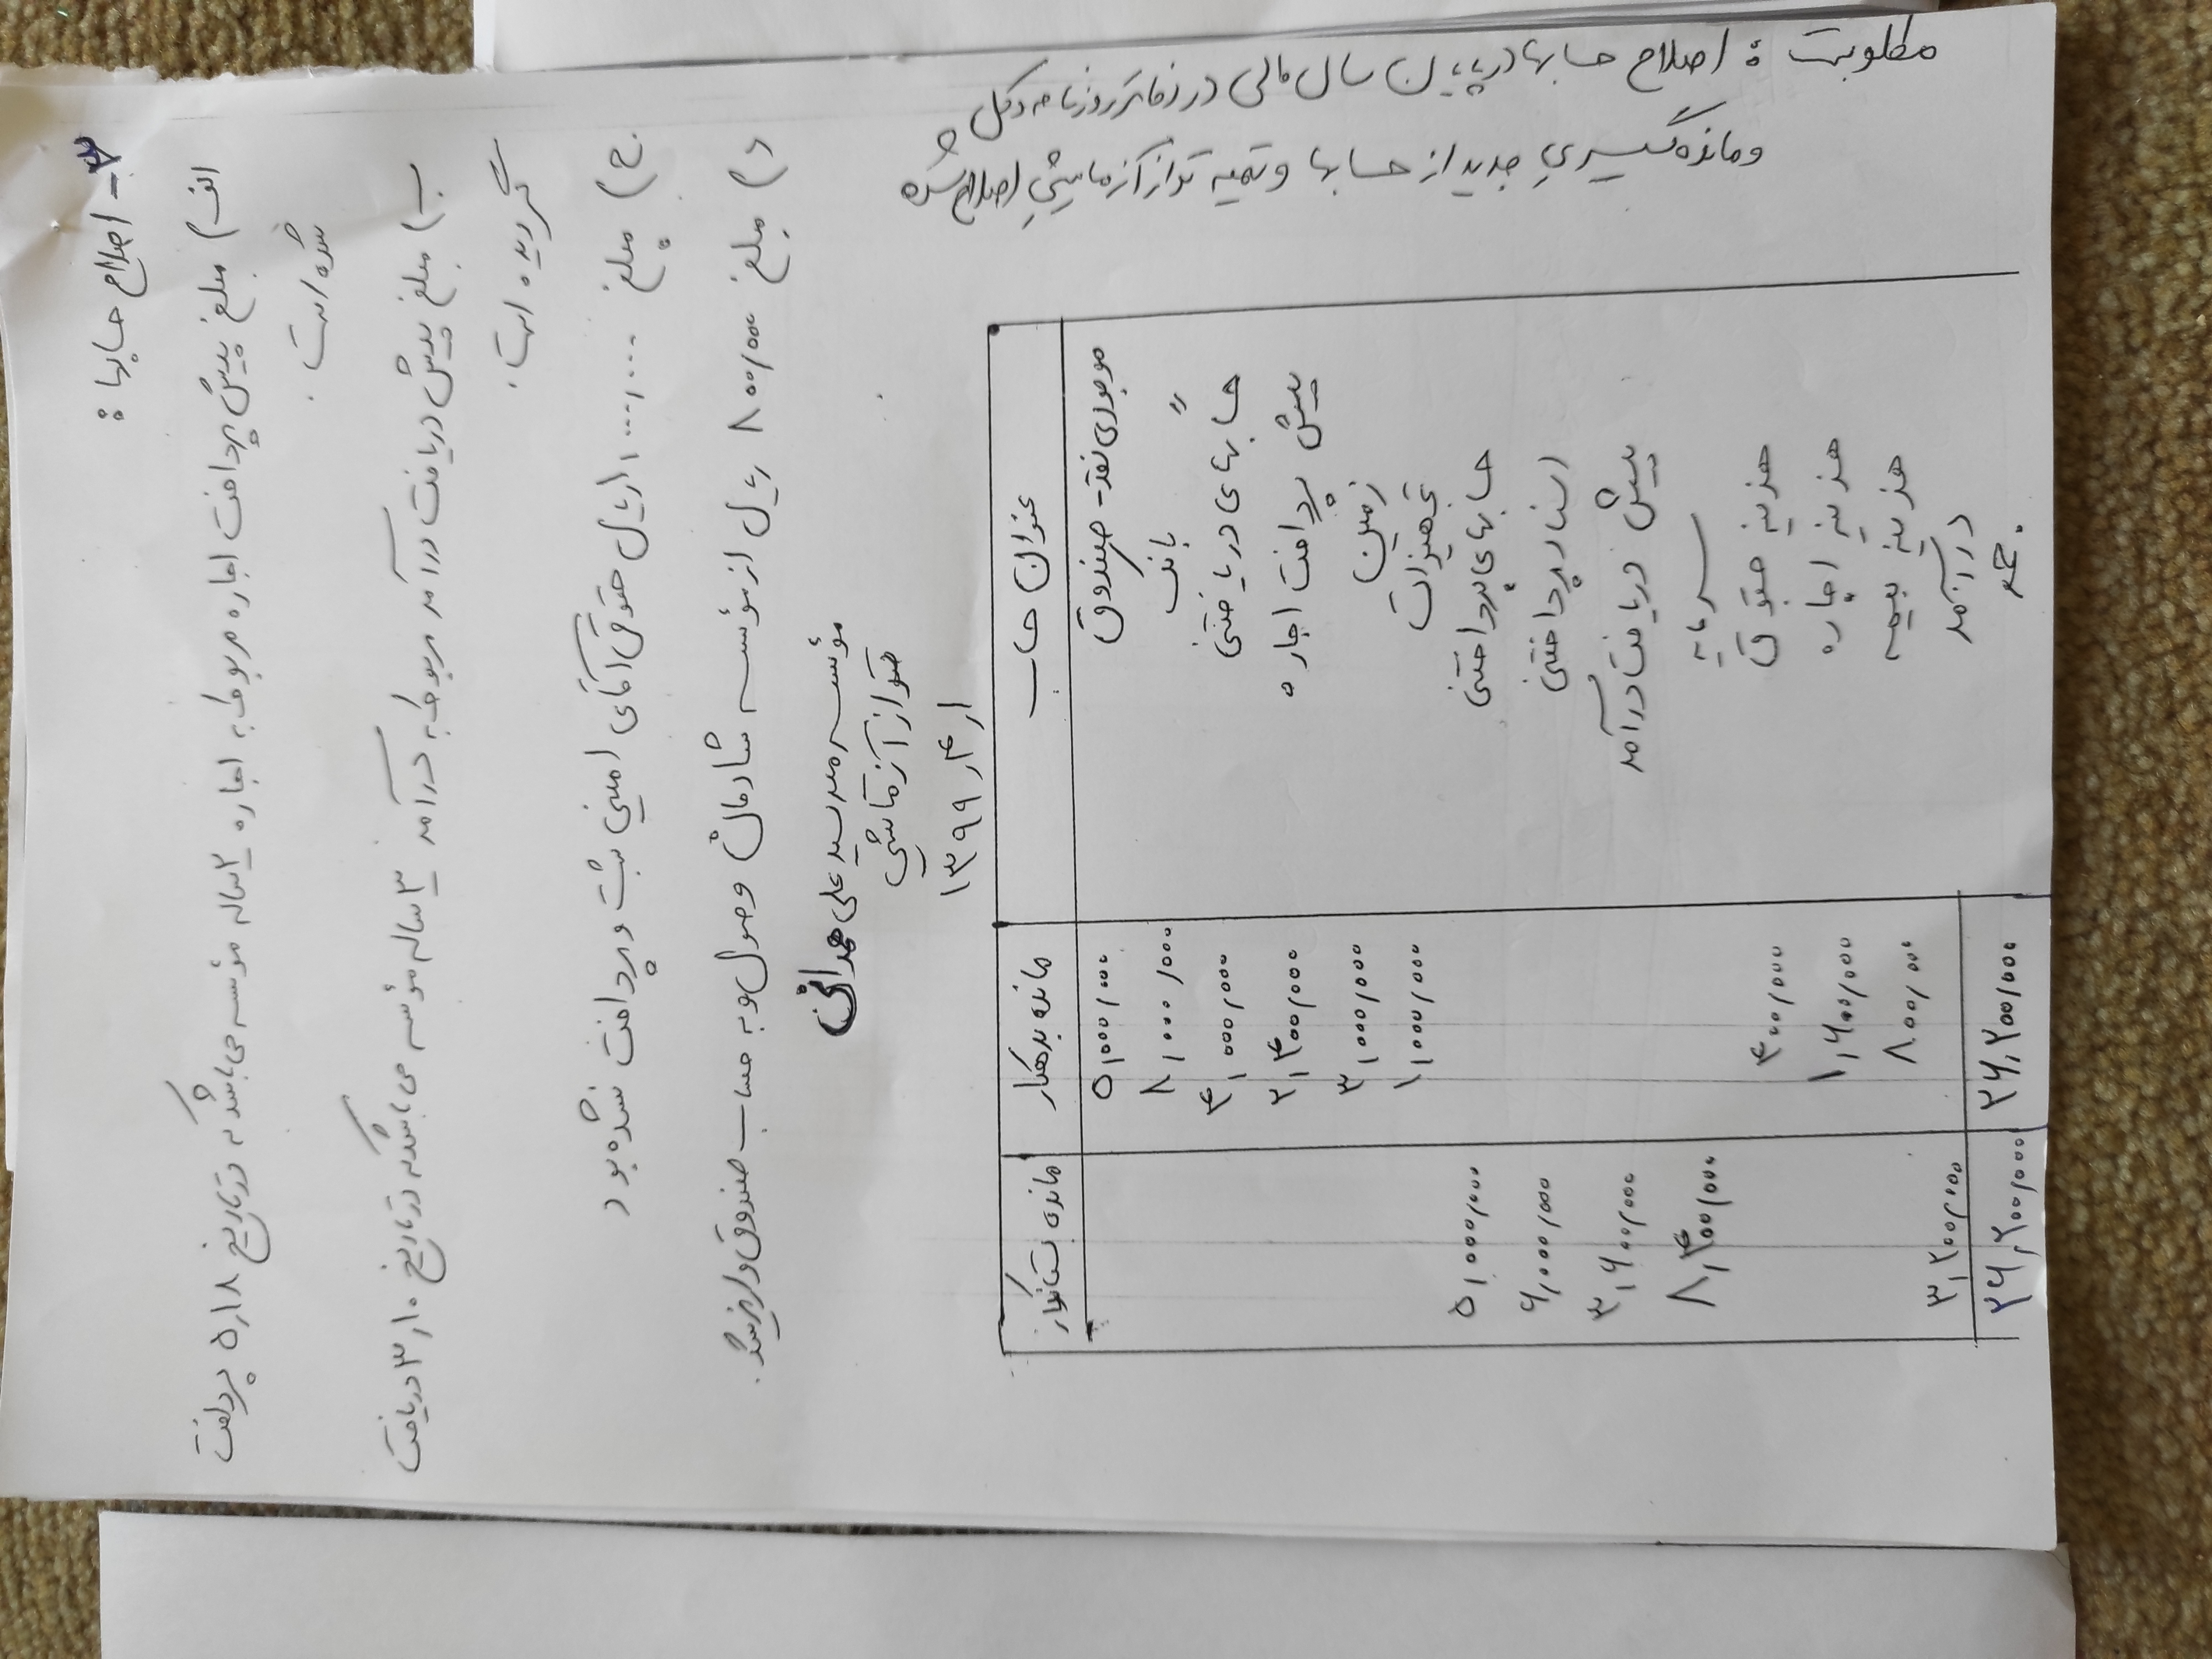 ۳- اصلاح حسابها :
الف) مبلغ پیش پرداخت اجاره مربوط به اجاره ۲ ساله مؤسسه می باشد که در تاریخ ۵٫۱۸ پرداخت
شده است .
ب) مبلغ پیش دریافت درآمد مربوط به درآمد ۳ ساله مؤسسه می باشد که در تاریخ ۳٫۱۰ دریافت
گردیده است .
ج) مبلغ ۱,۰۰۰,۰۰۰ ریال حقوق آقای امینی ثبت و پرداخت نشده بود
د) مبلغ ۸۰۰/۰۰۰ ریال از مؤسسه شادمان وصول و به حساب صندوق واریز شد .
مؤسسه میر سید علی همدانی
تراز آزمایشی
۱۳۹۹٫۴٫۱
عنوان حساب مانده بدهکار مانده بستانکار
موجودی نقد - صندوق ۵,۰۰۰/۰۰۰
〃 بانک ۸,۰۰۰/۰۰۰
حسابهای دریافتنی ۴,۰۰۰/۰۰۰
پیش پرداخت اجاره ۲,۴۰۰/۰۰۰
زمین ۳,۰۰۰/۰۰۰
تجهیزات ۱,۰۰۰/۰۰۰
حسابهای پرداختنی ۵,۰۰۰/۰۰۰
اسناد پرداختنی ۶,۰۰۰/۰۰۰
پیش دریافت درآمد ۳,۶۰۰/۰۰۰
سرمایه ۸,۴۰۰/۰۰۰
هزینه حقوق ۴۰۰/۰۰۰
هزینه اجاره ۱,۶۰۰/۰۰۰
هزینه بیمه ۸۰۰/۰۰۰
درآمد ۳,۲۰۰/۰۰۰
جمع ۲۶,۲۰۰/۰۰۰ ۲۶,۲۰۰/۰۰۰
مطلوبست : اصلاح حسابها در پایان سال مالی در دفاتر روزنامه و کل
و مانده گیری جدید از حسابها و تهیه تراز آزمایشی اصلاح شده